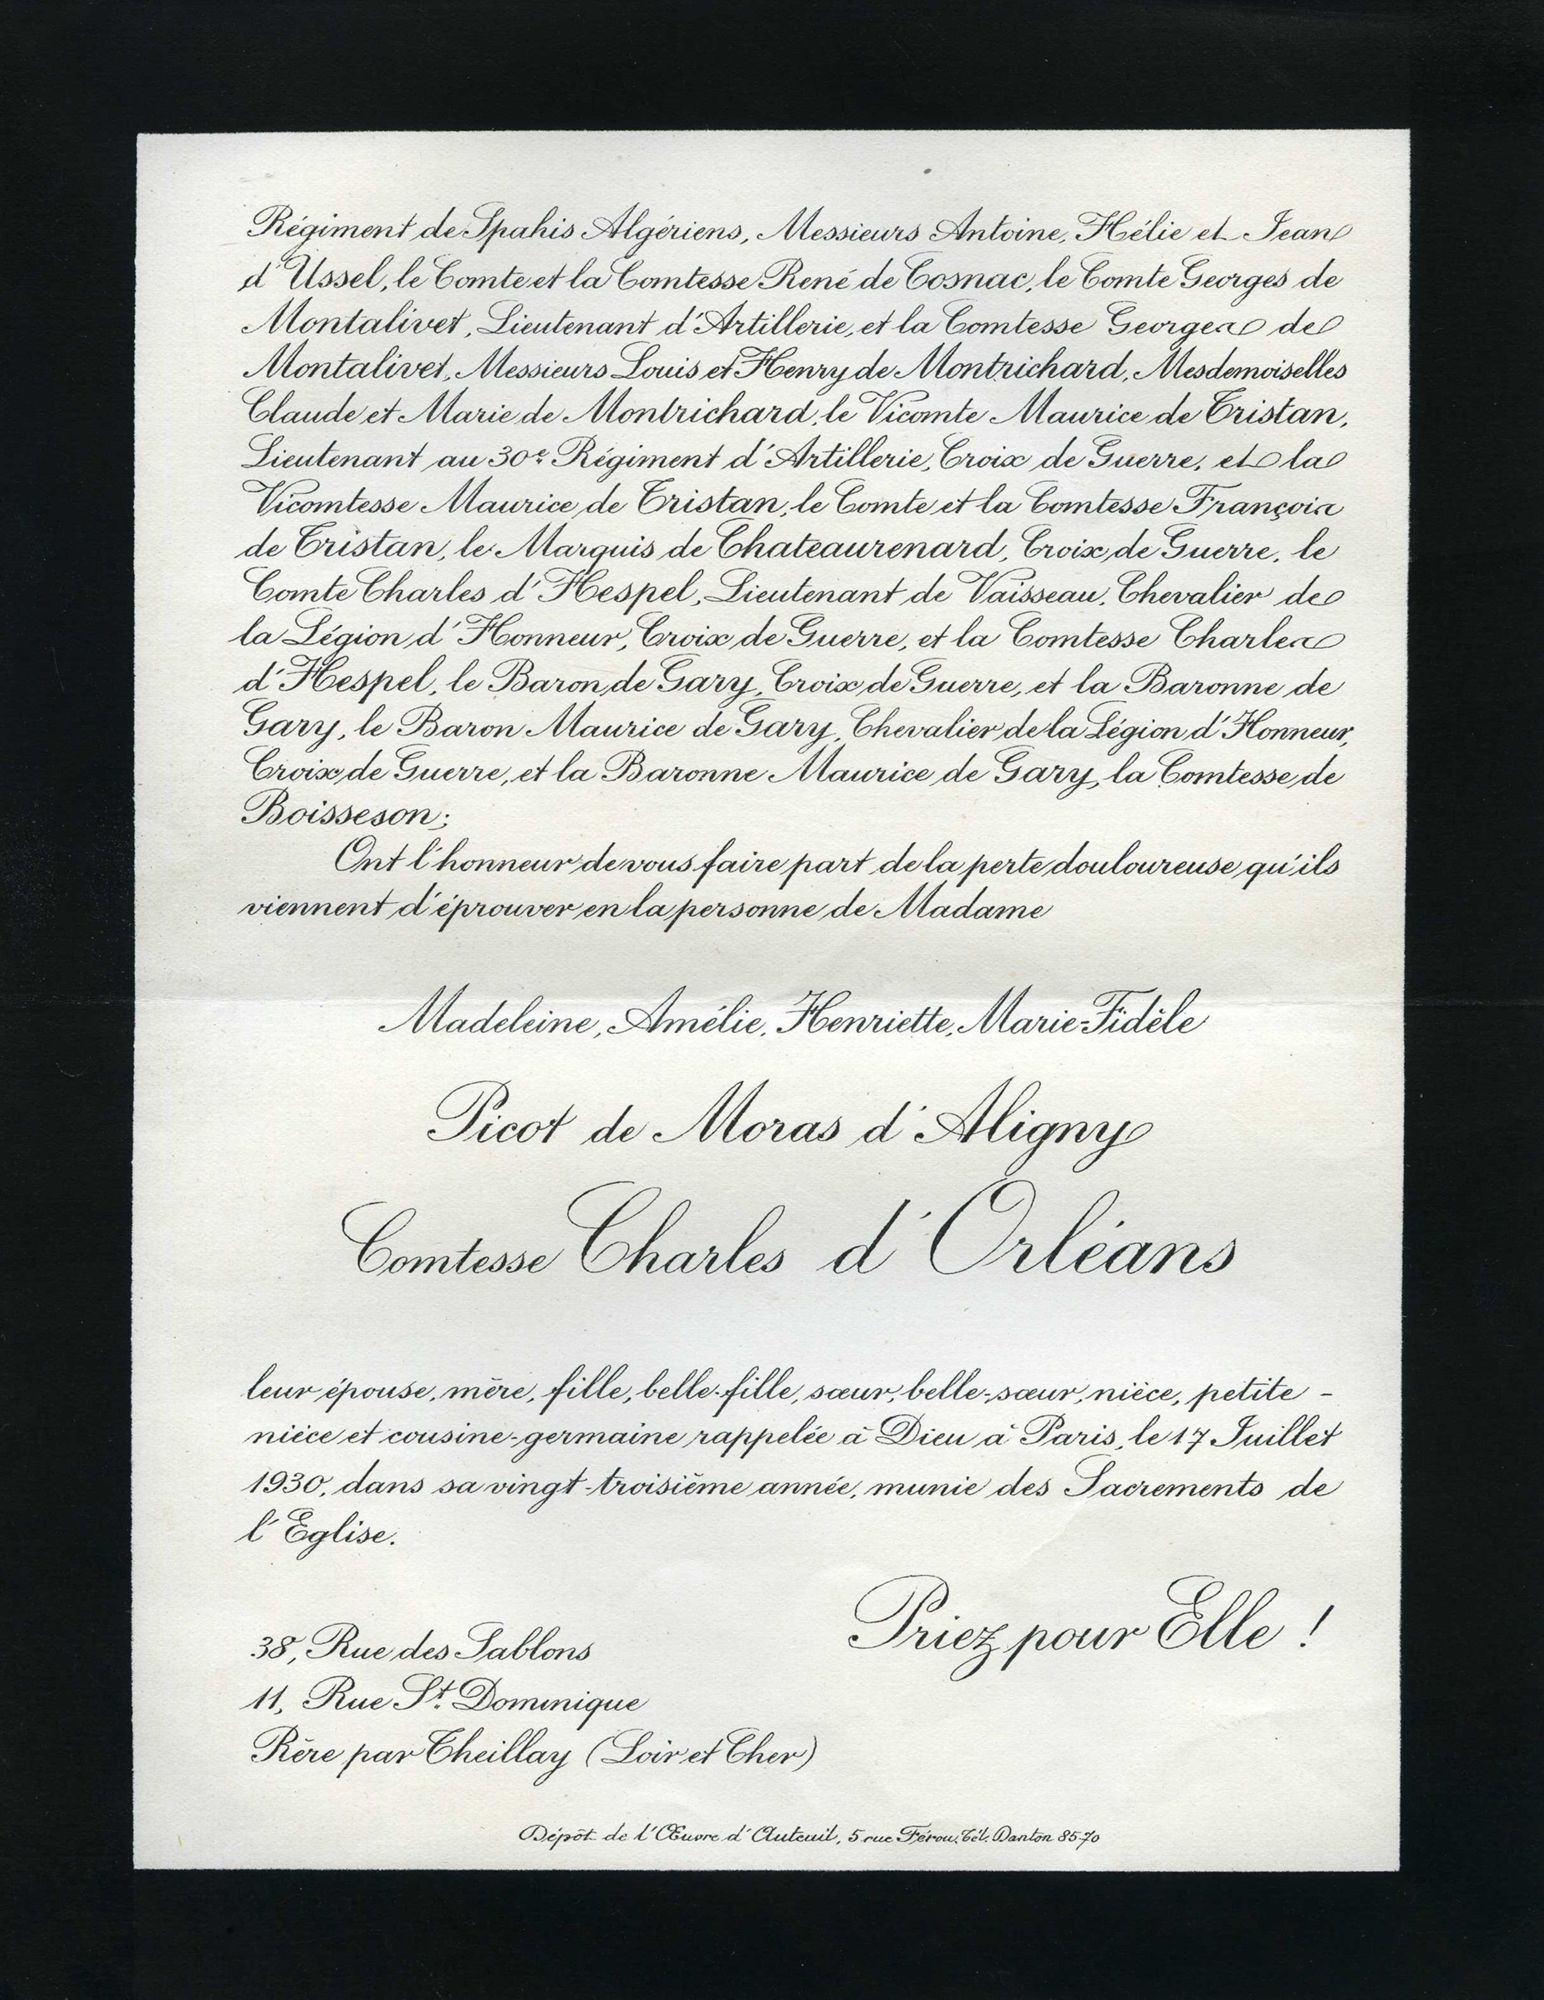 Régiment de Spahis Algériens, Messieurs Antoine, Hélie et Jean
d'Ussel, le Comte et la Comtesse René de Cosnac, le Comte Georges de
Montalivet, Lieutenant d'Artillerie, et la Comtesse Georges de
Montalivet, Messieurs Louis et Henry de Montrichard, Mesdemoiselles
Claude et Marie de Montrichard, le Vicomte Maurice de Tristan,
Lieutenant au 30e Régiment d'Artillerie, Croix de Guerre, et la
Vicomtesse Maurice de Tristan, le Comte et la Comtesse François
de Tristan, le Marquis de Chateaurenard, Croix de Guerre, le
Comte Charles d'Hespel, Lieutenant de Vaisseau, Chevalier de
la Légion d'Honneur, Croix de Guerre, et la Comtesse Charles
d'Hespel, le Baron de Gary, Croix de Guerre, et la Baronne de
Gary, le Baron Maurice de Gary, Chevalier de la Légion d'Honneur,
Croix de Guerre, et la Baronne Maurice de Gary, la Comtesse de
Boisseson;
Ont l'honneur de vous faire part de la perte douloureuse qu'ils
viennent d'éprouver en la personne de Madame
Madeleine, Amélie, Henriette, Marie-Fidèle
Picot de Moras d'Aligny
Comtesse Charles d'Orléans
leur épouse, mère, fille, belle-fille, sœur, belle-sœur, nièce, petite-
nièce et cousine-germaine rappelée à Dieu à Paris, le 17 Juillet
1930, dans sa vingt-troisième année, munie des Sacrements de
l'Eglise.
Priez pour Elle !
38, Rue des Sablons
11, Rue St. Dominique
Rère par Theillay (Loir et Cher)
Dépôt de l'Œuvre d'Auteuil, 5 rue Férou, Tél. Danton 85-70